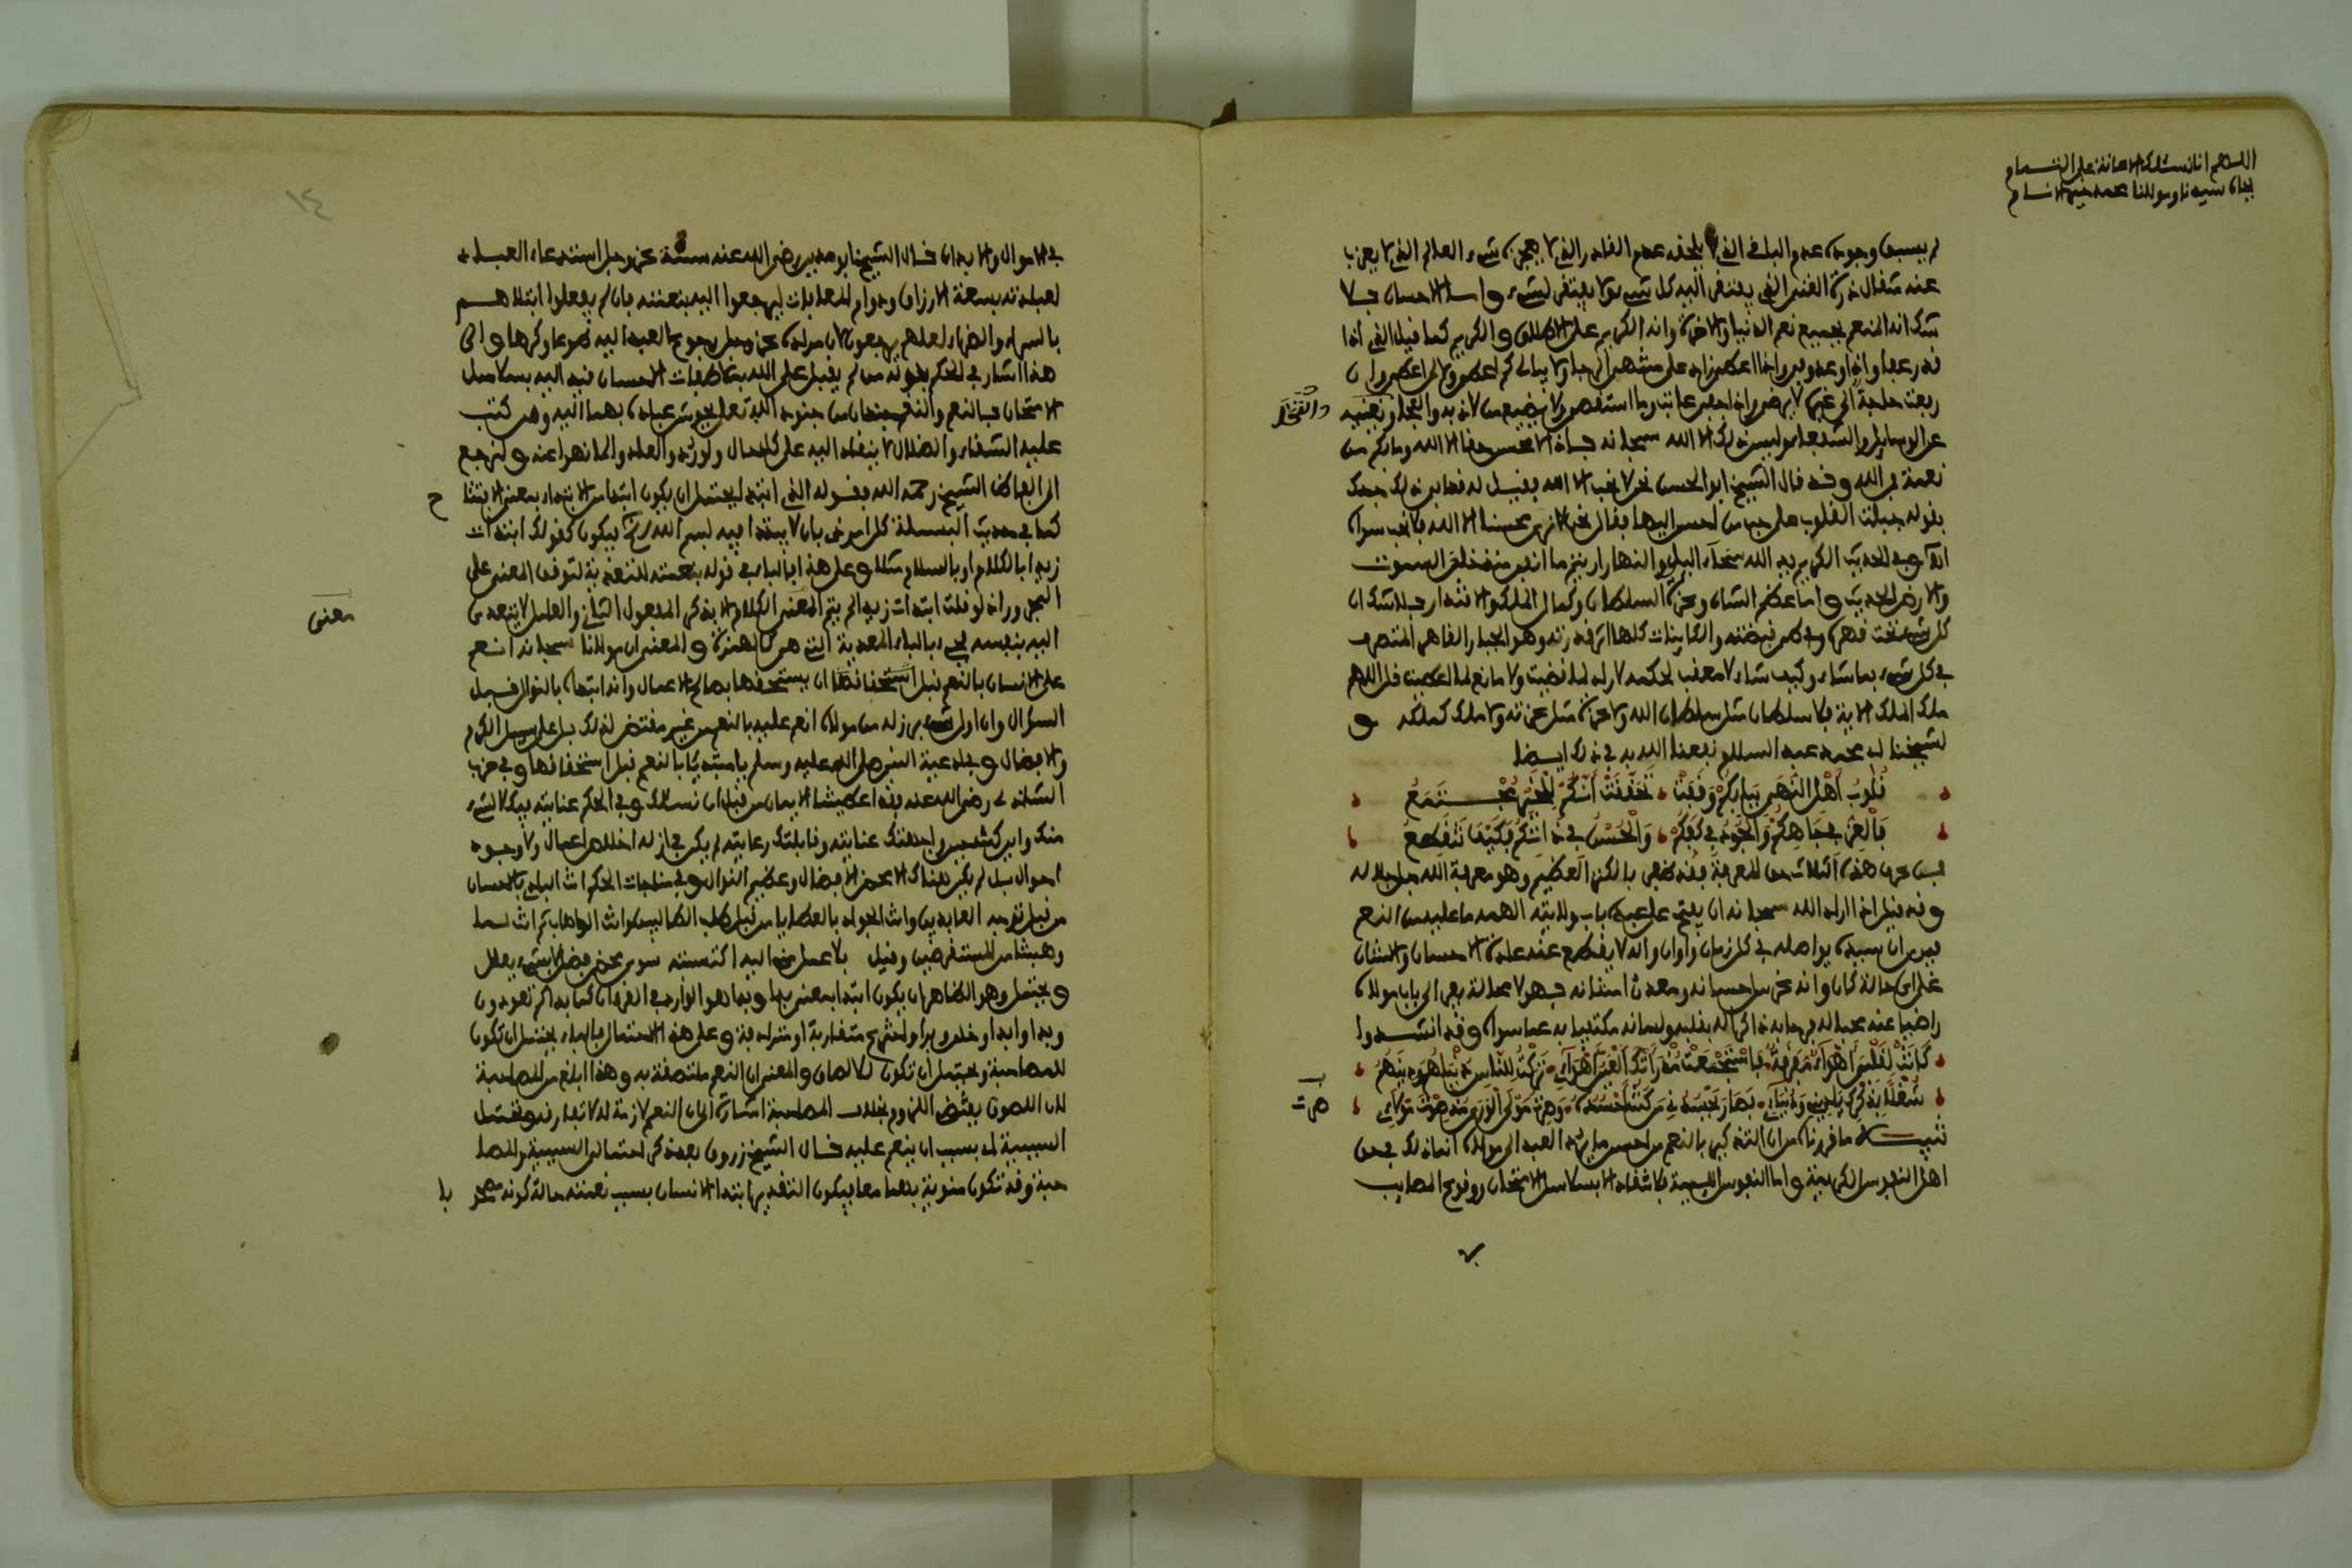 اللهم انا نسئلك الاعانة على التمام
بجاه سيدنا ومولانا محمد خير الانام
لم يسبق وجوده عدم والباقي الذي لا يلحقه عدم القادر الذي لا يعجزه شيء العالم الذي لا يعزب
عنه مثقال ذرة الغني الذي يفتقر اليه كل شيء ولا يفتقر لشيء واما الاحسان فلا
شك انه المنعم بجميع نعم الدنيا والاخرة وانه الكريم على الاطلاق والكريم كما قيل الذي اذا
قدر عفا واذا وعد وفى واذا اعطى زاد على منتهى الرجا ولا يبالي كم اعطى ولا لمن اعطى وان
رفعت حاجة الى غيره لا يرضى واذا جفي عاتب وما استقصى ولا يضيع من لاذ به والتجا ويغنيه
والتجا
عن الوسايل والشفعا وليس ذلك الا لله سبحانه فاذا لا محسن حقا الا الله وما بكم من
نعمة فمن الله وقد قال الشيخ ابو الحسن نحن لا نحب الا الله فقيل له فقد ابى ذلك جدك
بقوله جبلت القلوب على حب من احسن اليها فقال نحن لا نرى محسنا الا الله فلا نحب سواه
وفي الحديث الكريم يد الله سحاء الليل والنهار ارايتم ما انفق منذ خلق السموت
والارض الحديث واما عظم الشان وعزة السلطان وكمال الملك والاقتدار فلا شك ان
كل شيء تحت قهره وفي اسر قبضته والكاينات كلها اثر قدرته وهو الجبار القاهر المتصرف
في كل شيء بما شاء وكيف شاء لا معقب لحكمه لا راد لما قضيت ولا مانع لما اعطيت قل اللهم
ملك الملك الاية فلا سلطان مثل سلطان الله ولا عزة مثل عزته ولا ملك كملكه و
لشيخنا ابي محمد عبد السلام نفعنا الله به في ذلك ايضا
قُلُوبُ أَهْلِ النُّهَى بِبَابِكُمْ وَقَفَتْ تَحَقَّقَتْ أَنَّكُمْ لِلْخَيْرِ مُجْتَمَعُ
فَالْعِزُّ فِي جَاهِكُمْ وَالْجُودُ فِي كَفِّكُمْ وَالْحُسْنُ فِي ذَاتِكُمْ فَكَيْفَ نَنْقَطِعُ
فمن عرف هذه الثلاث من المعرفة فقد ظفر بالكنز العظيم وهو معرفة الله جل جلاله
وقد قيل اذا اراد الله سبحانه ان يفتح على عبده باب ولايته الهمه ما عليه من النعم
فيرى ان سيده يواصله في كل زمان واوان وانه لا يقطع عنه عادة الاحسان والامتنان
على اي حالة كان وانه غريق احسانه ومعدن امتنانه فهو لا محالة يفر الى باب مولاه
راضيا عنه محبا له فرحا به ذاكرا له بقلبه ولسانه مكتفيا به عما سواه وقد انشدوا
كَانَتْ لِقَلْبِي أَهْوَاءٌ مُفَرَّقَةٌ فَاسْتَجْمَعَتْ مُذْ رَأَتْكَ الْعَيْنُ أَهْوَاءِي تَرَكْتُ لِلنَّاسِ دُنْيَاهُمْ وَدِينَهُمْ
شُغْلًا بِذِكْرِكَ يَا دِينِي وَدُنْيَاءِي فَصَارَ يَحْسُدُنِي مَنْ كُنْتُ أَحْسُدُهُ وَصِرْتُ مَوْلَى الْوَرَى مُذْ صِرْتَ مَوْلَاءِي
صرت
تنبيه ما قررناه من ان التذكير بالنعم من احسن ما يرد العبد الى مولاه انما ذلك في حق
اهل النفوس الكريمة واما النفوس اللئيمة فلا تنقاد الا بسلاسل الامتحان وقوع المصايب
في الاموال والابدان قال الشيخ ابو مدين رضي الله عنه سنته عز وجل استدعاء العباد
لعبادته بسعة الارزاق ودوام المعافات ليرجعوا اليه بنعمته فان لم يفعلوا ابتلاهم
بالسراء والضراء لعلهم يرجعون لان مراده عز وجل رجوع العبد اليه طوعا وكرها والى
هذا اشار في الحكم بقوله من لم يقبل على الله بملاطفات الاحسان قيد اليه بسلاسل
الامتحان فالنعم والنقم جندان من جنود الله تعلى يحوش عباده بهما اليه ومن كتب
عليه الشقاء والضلال لا ينقاد اليه على كل حال ولو ردوا لعادوا لما نهوا عنه ولنرجع
الى الفاظ الشيخ رحمه الله فقوله الذي ابتدا يحتمل ان يكون ابتدا من الابتداء بمعنى الافتتاح
كما في حديث البسملة كل امر ذي بال لا يبتدا فيه ببسم الله الخ فيكون كقولك ابتدات
زيدا بالكلام او بالسلام مثلا وعلى هذا فالباء في قوله بنعمته للتعدية لتوقف المعنى على
المجرور اذ لو قلت ابتدات زيدا لم يتم المعنى الكلام الا بذكر المفعول الثاني والعامل لا يتعدى
معنى
اليه بنفسه فجيء بالباء المعدية التي هي كالهمزة والمعنى ان مولانا سبحانه انعم
على الانسان بالنعم قبل استحقاقها ان يستحقها بصالح الاعمال وانه ابتداه بالنوال قبل
السؤال وان اول شيء برز له من مولاه انعم عليه بالنعم من غير مقتض لذلك بل على سبيل الكرم
والافضال وفي ادعية النبي صلى الله عليه وسلم يا مبتديا بالنعم قبل استحقاقها وفي حزب
الشاذلي رضي الله عنه فقد اعطيتنا الايمان من قبل ان نسالك وفي الحكم عنايته فيك لا لشيء
منك واين كنت حين واجهتك عنايته وقابلتك رعايته لم يكن في ازله اخلاص اعمال ولا وجود
احوال بل لم يكن هناك الا محض الافضال وعظيم النوال وفي مناجات الحكم انت البادي بالاحسان
من قبل توجه العابدين وانت الجواد بالعطايا من قبل طلب الطالبين وانت الوهاب ثم انت لما
وهبتنا من المستقرضين وقيل بلا عمل مني اليه اكتسبته سوى محض فضل لا بشيء يعلل
ويحتمل وهو الظاهر ان يكون ابتدا بمعنى بدا وبدا هو الوارد في القرءان كما بداكم تعودون
وبدا وابدا وخلق وبرا واخترع متقاربة او مترادفة وعلى هذا الاحتمال فالباء يحتمل ان تكون
للمصاحبة ويحتمل ان تكون للالصاق والمعنى ان النعم ملتصقة به وهذا ابلغ من المصاحبة
لان اللصوق يقتضي اللزوم بخلاف المصاحبة اشارة الى ان النعم لازمة له لا تفارقه وتحتمل
السببية اي بسبب ان ينعم عليه قال الشيخ زروق بعد ذكر احتمالي السببية والمصا
حبة وقد تكون منوية بهما معا فيكون التقدير ابتدا الانسان بسبب نعمته حالة كونه